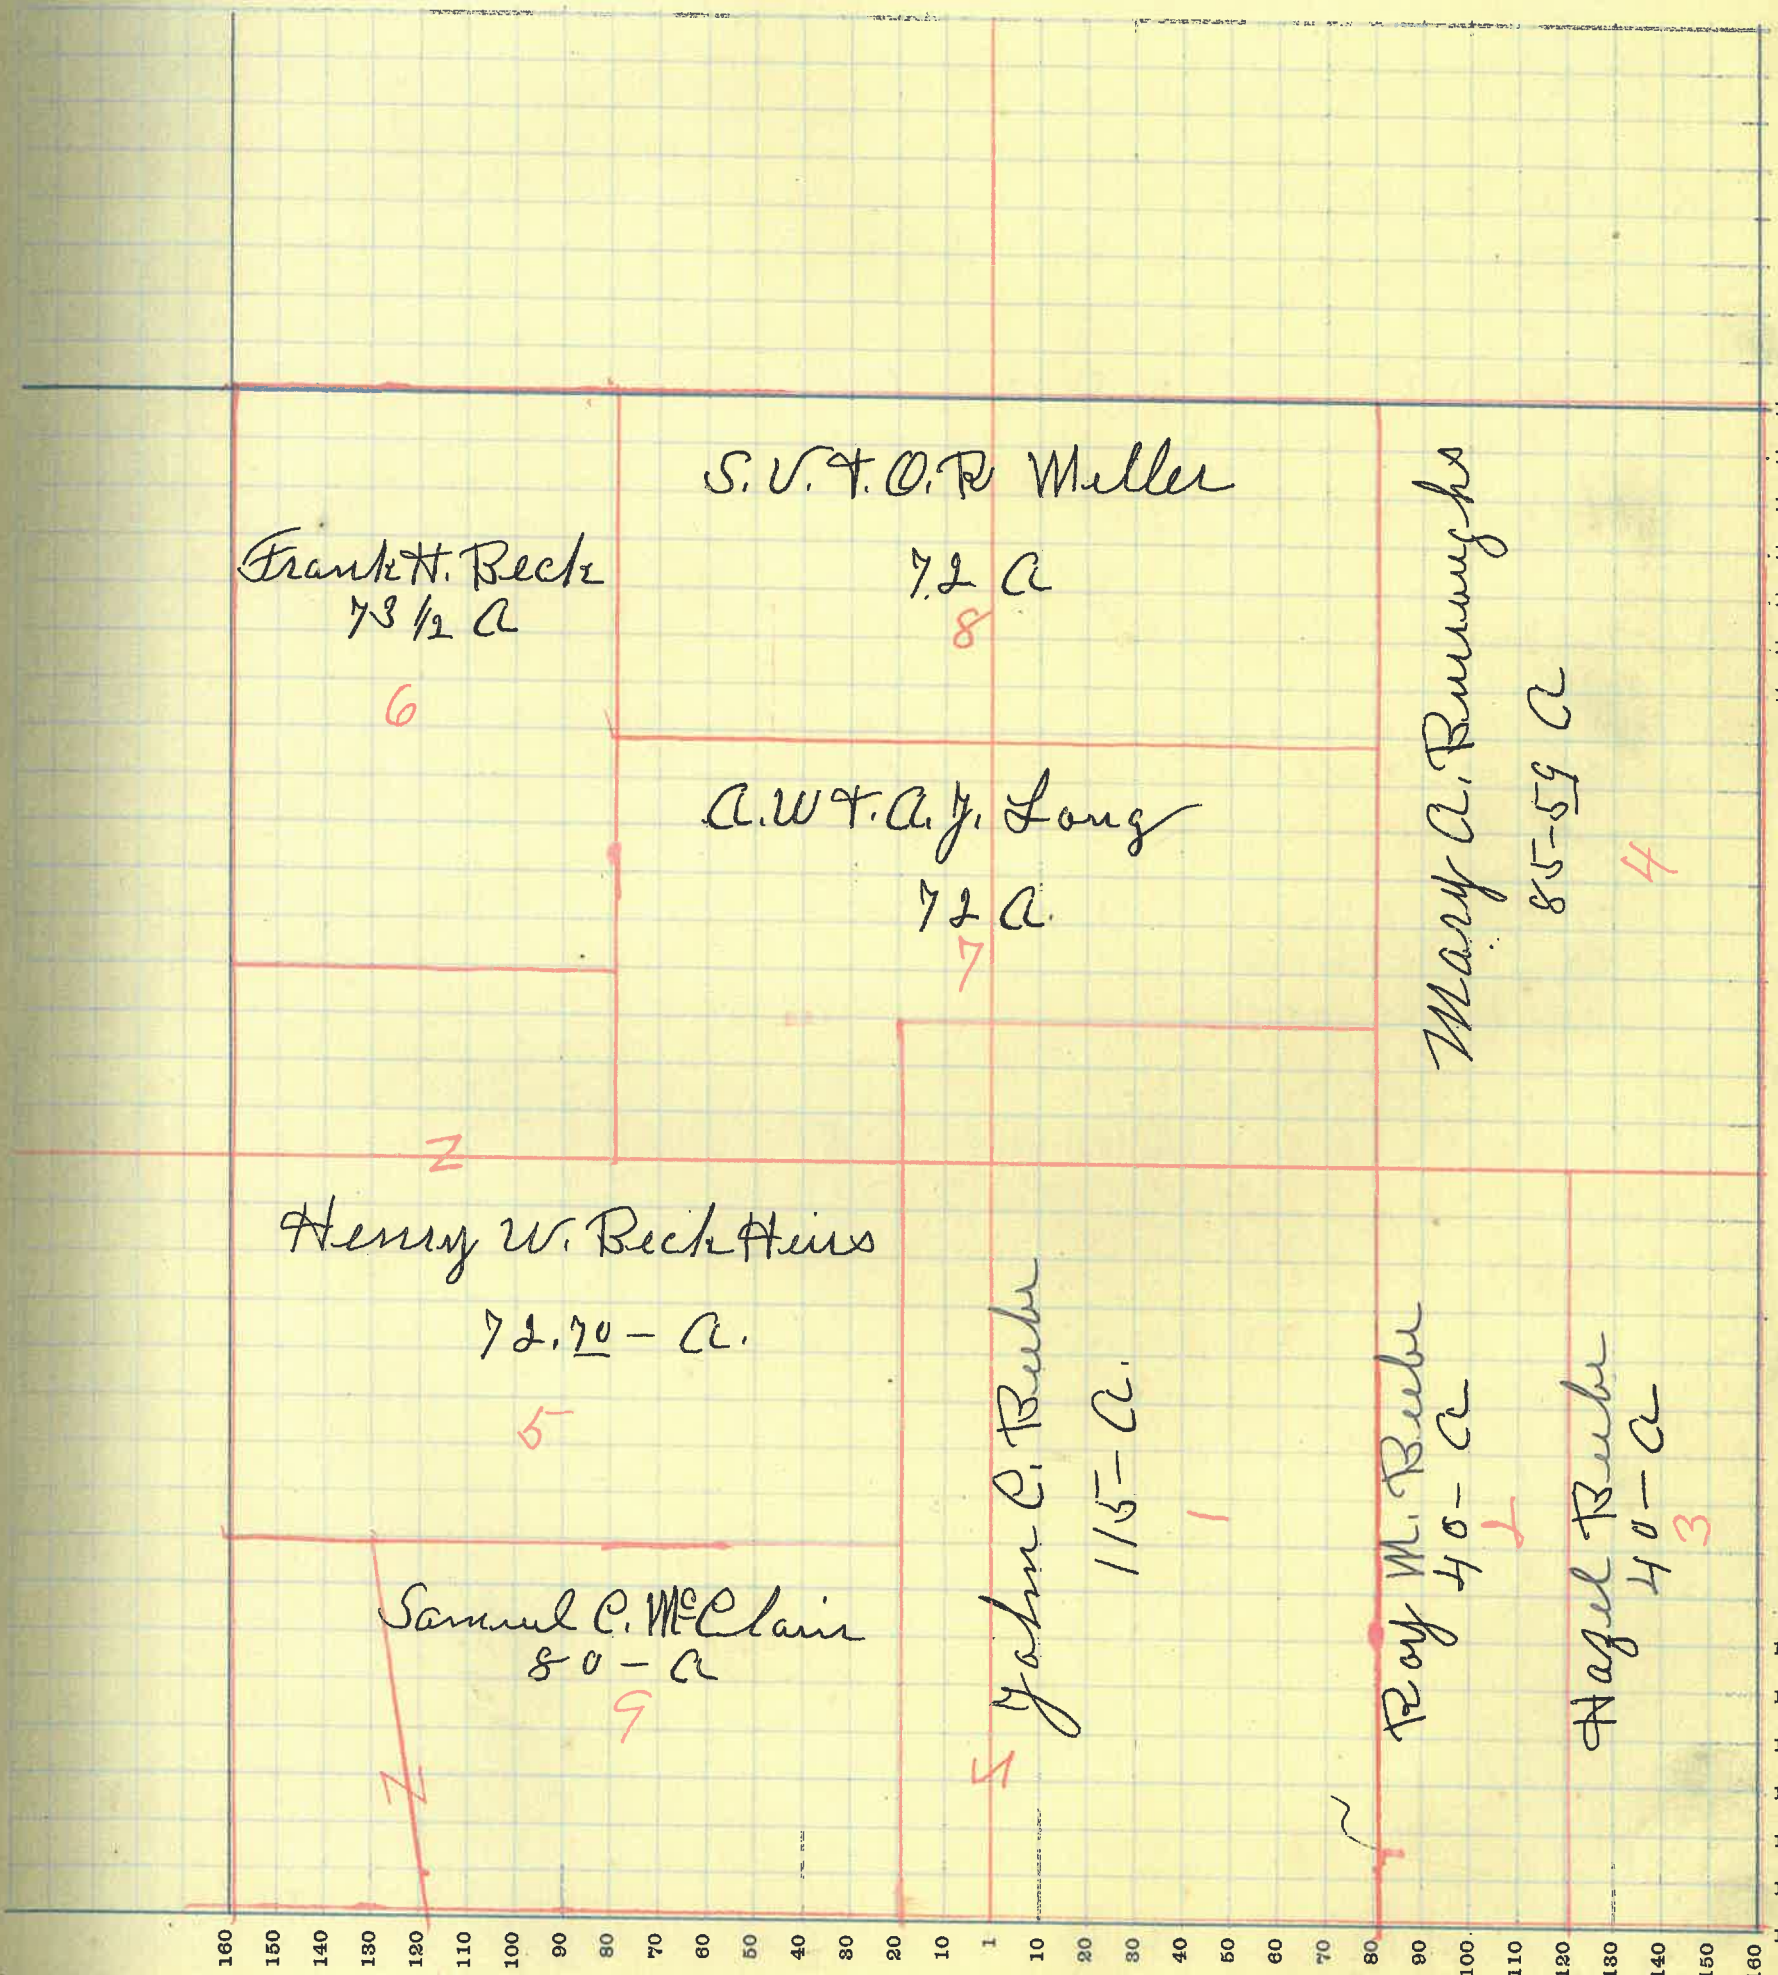 S. V. + O. R Miller
72 a
8
Frank H. Beck
73 1/2 a
6
A. W + A. J. Long
72 a.
7
Mary A. Burroughs
85-59 a
4
Z
Henry W. Beck Heirs
72.70 - a.
5
John C. Beebe
115 - a.
1
Roy M. Beebe
40 - a
2
Hazel Beebe
40 - a
3
Samuel C. McClain
80 - a
9
Z
160 150 140 130 120 110 100 90 80 70 60 50 40 30 20 10 1 10 20 30 40 50 60 70 80 90 100 110 120 130 140 150 160